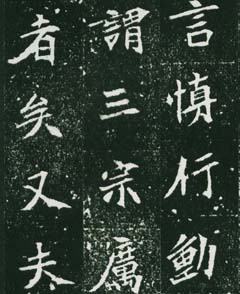 言慎行動
謂三宗厲
者矣又夫